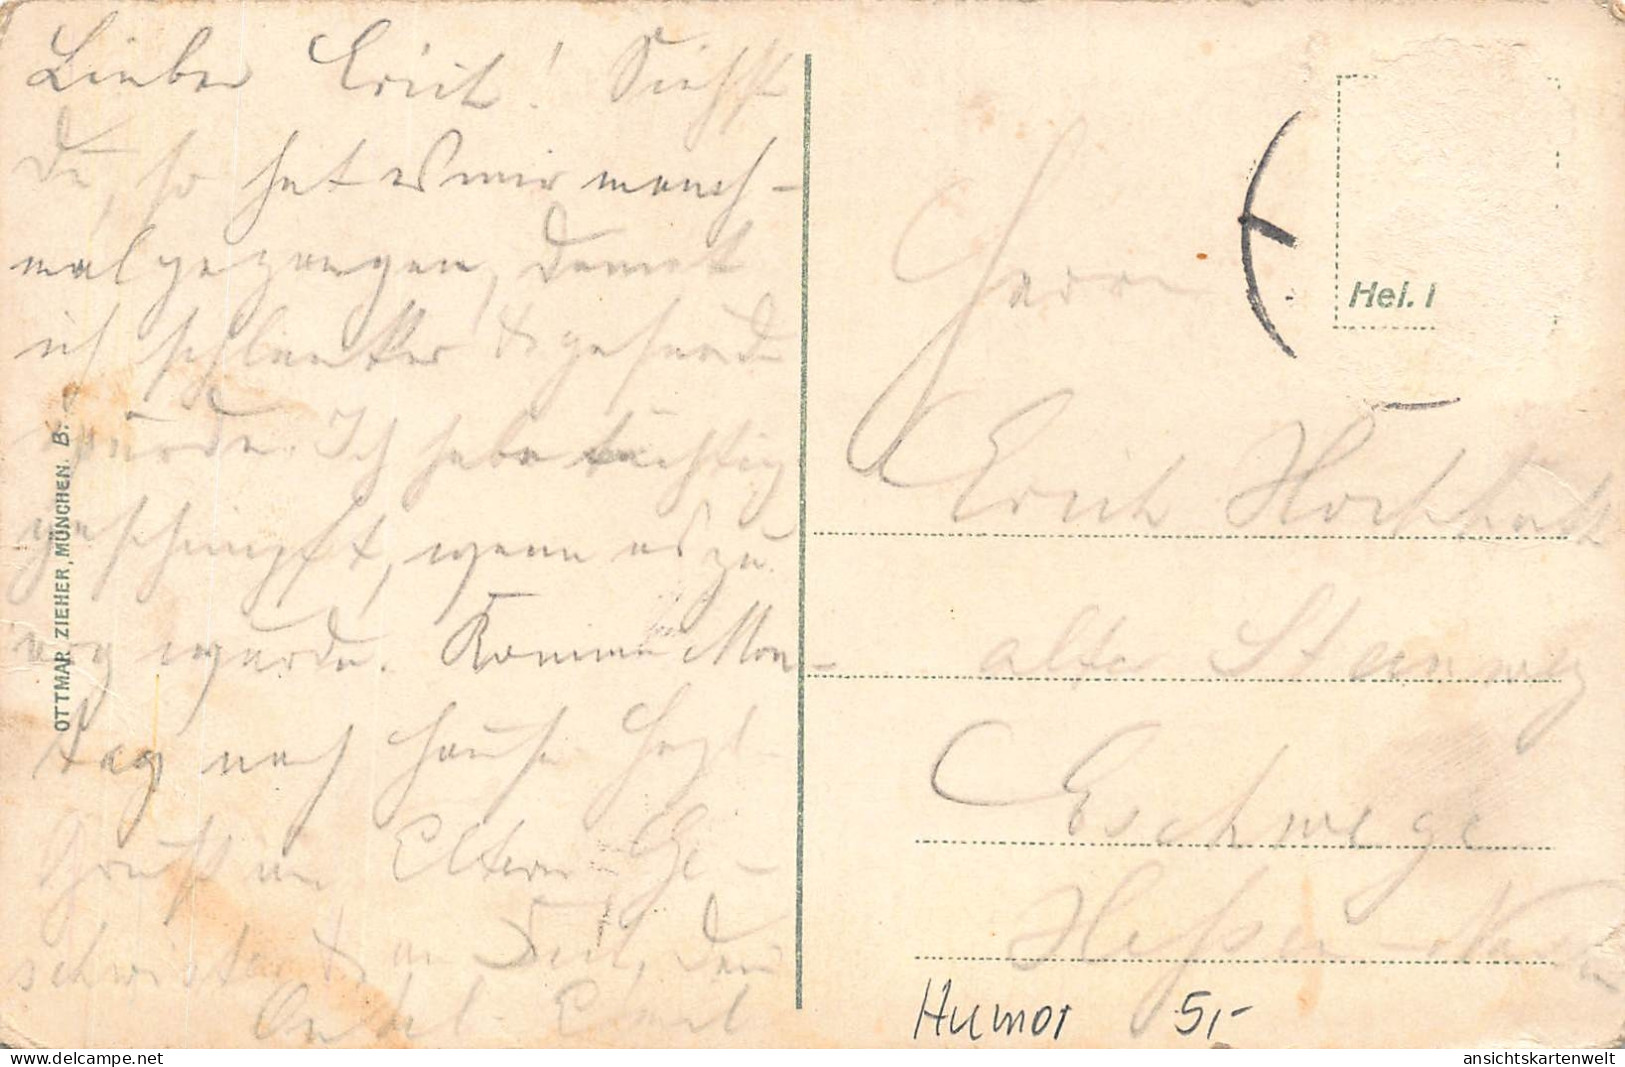 Lieber Erich! Siehst
Du, so hat es mir manch-
mal gegangen, damit
ich schlanker & gesunde
würde. Ich habe tüchtig
geschimpft, wenn es zu
arg wurde. Komme Mon-
tag nach Hause. Herzl.
Gruß an Eltern Ge-
schwister & an Dich, Dein
Onkel Emil
OTTMAR ZIEHER, MÜNCHEN. B.
Hel. I
Herrn
Erich Hochhuth
alter Steinweg
Eschwege
Hessen-Nassau
Humor 5,-
ansichtskartenwelt